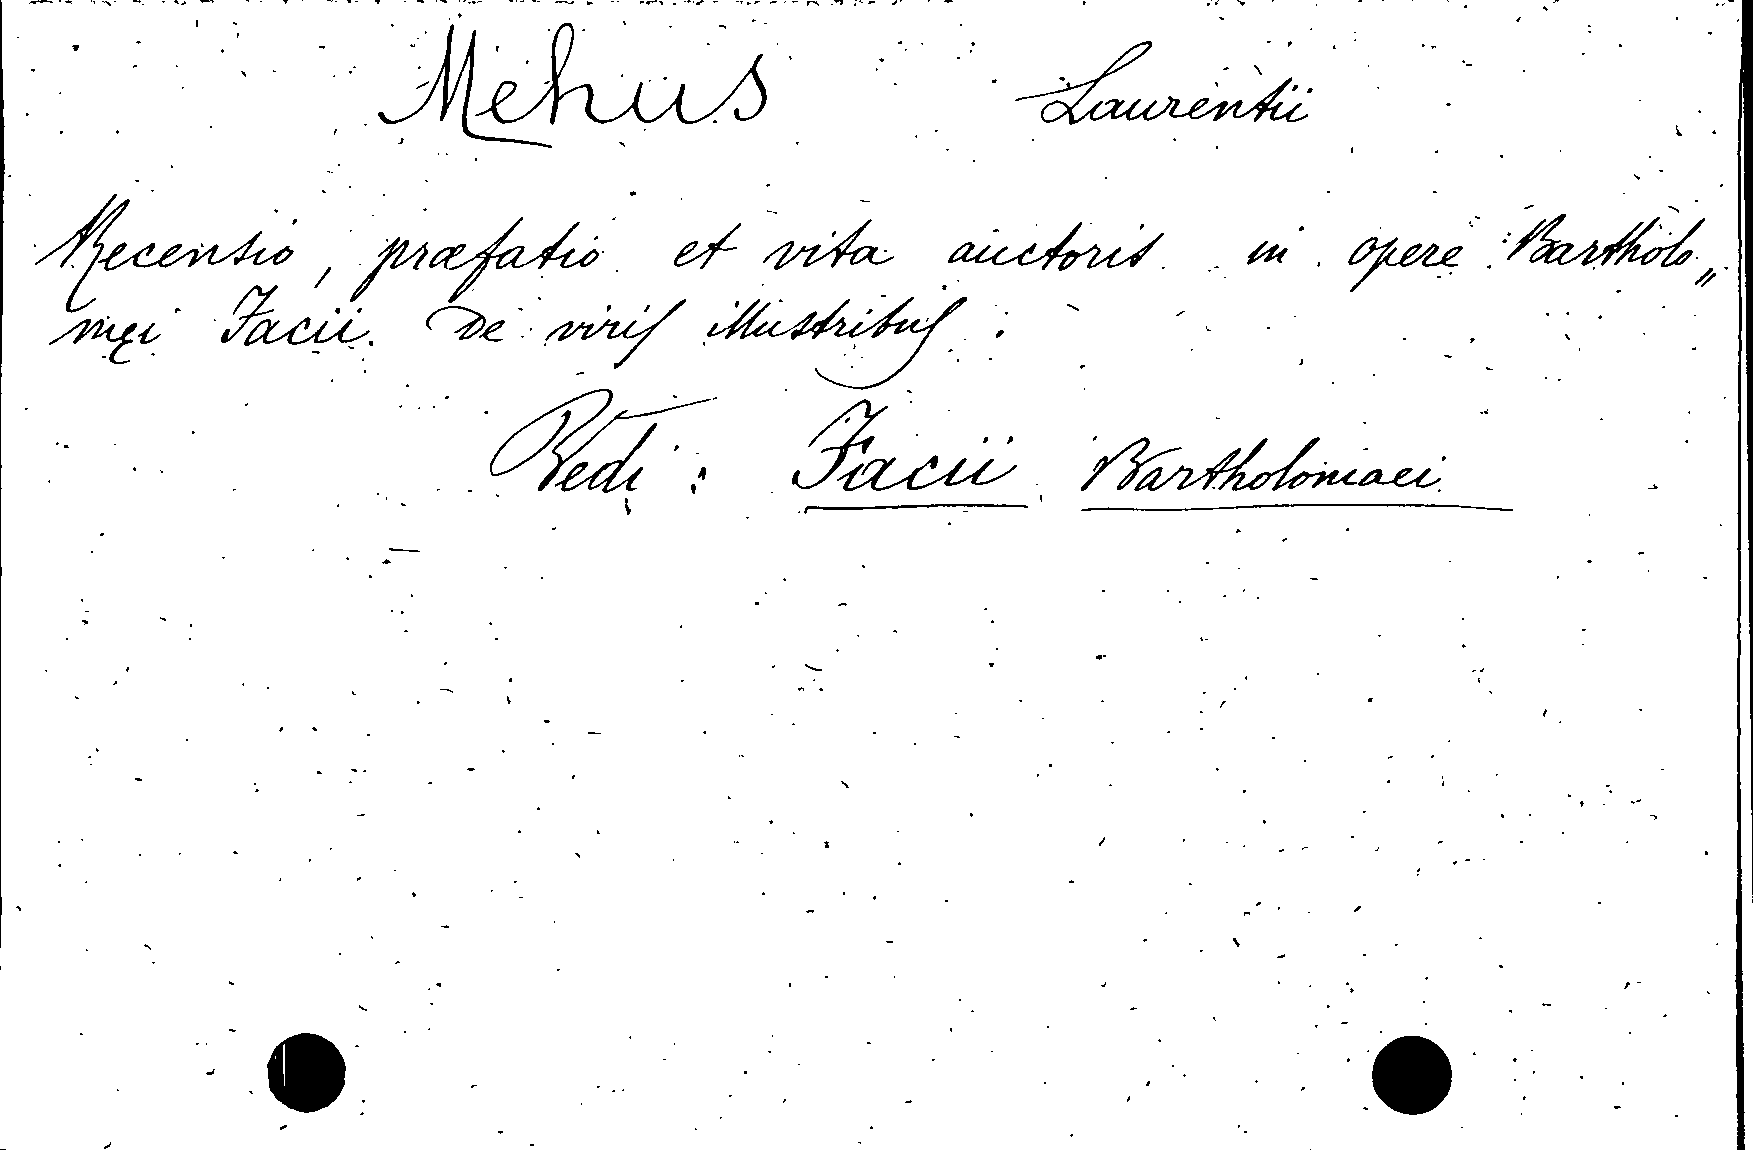 Mehus Laurentii
Recensio, præfatio et vita auctoris in opere Bartholo„
męi Facii. De viris illustribus.
Vedi: Facii Bartholomaei